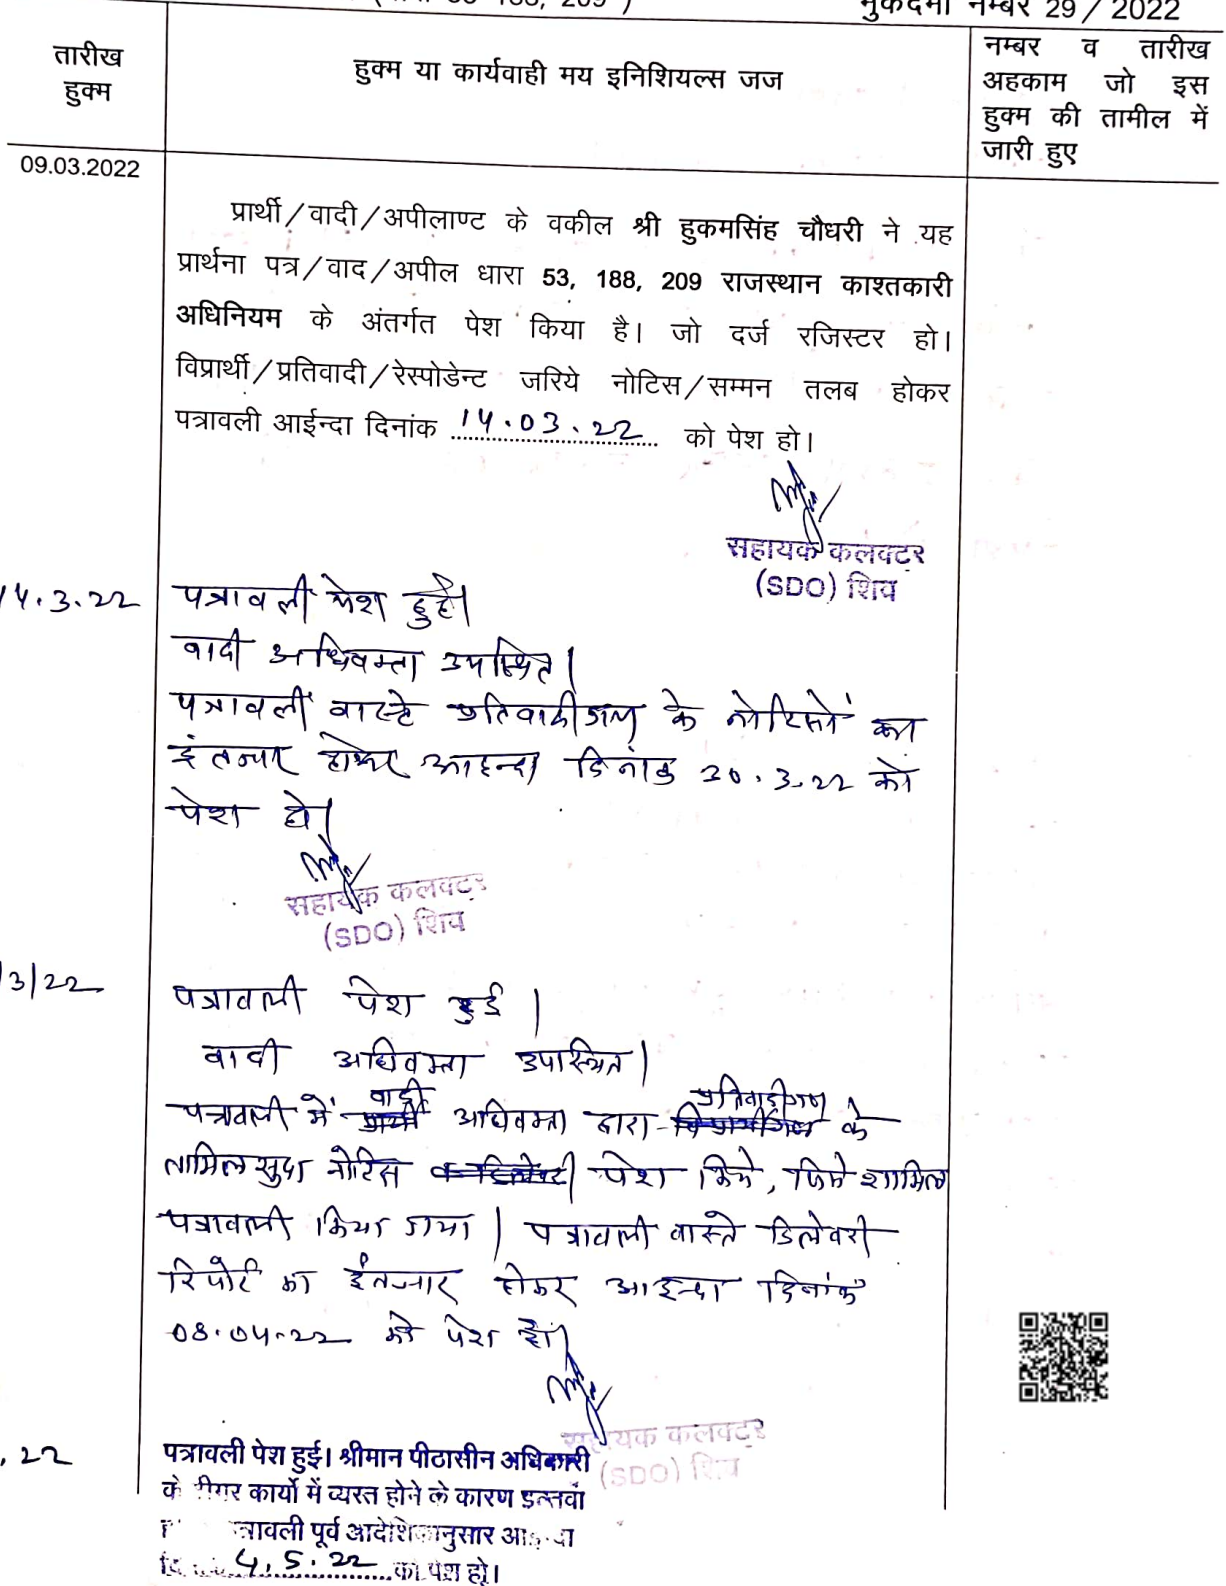 53 188, 209 ) मुकदमा नम्बर 29 / 2022
तारीख
हुक्म
हुक्म या कार्यवाही मय इनिशियल्स जज
नम्बर व तारीख
अहकाम जो इस
हुक्म की तामील में
जारी हुए
09.03.2022
प्रार्थी/वादी/अपीलाण्ट के वकील श्री हुकमसिंह चौधरी ने यह
प्रार्थना पत्र/वाद/अपील धारा 53, 188, 209 राजस्थान काश्तकारी
अधिनियम के अंतर्गत पेश किया है। जो दर्ज रजिस्टर हो।
विप्रार्थी/प्रतिवादी/रेस्पोडेन्ट जरिये नोटिस/सम्मन तलब होकर
पत्रावली आईन्दा दिनांक 14.03.22 को पेश हो।
सहायक कलक्टर
(SDO) शिव
14.3.22 पत्रावली पेश हुई।
वादी अधिवक्ता उपस्थित।
पत्रावली वास्ते प्रतिवादीगण के नोटिसों का
इंतजार होकर आइन्दा दिनांक 30.3.22 को
पेश हो।
सहायक कलक्टर
(SDO) शिव
3/22 पत्रावली पेश हुई |
वादी अधिवक्ता उपस्थित।
पत्रावली में वादी अधिवक्ता द्वारा प्रतिवादीगण के
तामिल सुदा नोटिस पेश किये, जिसे शामिल
पत्रावली किया गया | पत्रावली वास्ते डिलेवरी
रिपोर्ट का इंतजार होकर आइन्दा दिनांक
08.04.22 को पेश हो।
सहायक कलक्टर
(SDO) शिव
.22 पत्रावली पेश हुई। श्रीमान पीठासीन अधिकारी
के कार्यो में व्यस्त होने के कारण
पूर्व आदेशिकानुसार
4.5.22 को पेश हो।